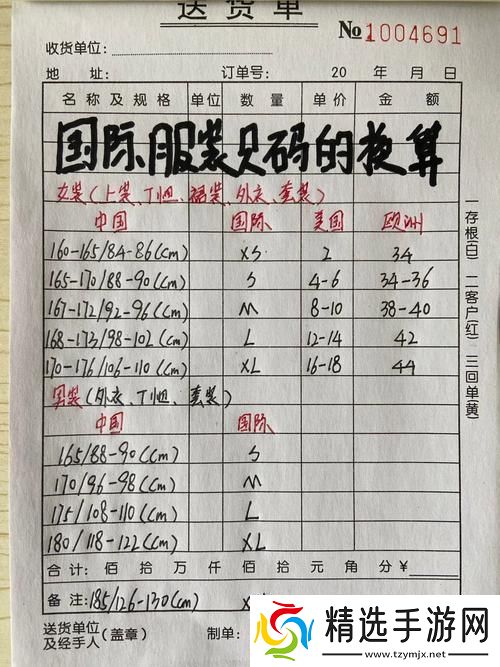 送货单
№1004691
收货单位:
地 址: 订单号: 20 年 月 日
名称及规格 单位 数量 单价 金额
国际服装尺码的换算
女装(上装、T恤、裙装、外衣、套装)
中国 国际 美国 欧洲
160-165/84-86(cm) XS 2 34
165-170/88-90(cm) S 4-6 34-36
167-172/92-96(cm) M 8-10 38-40
168-173/98-102(cm) L 12-14 42
170-176/106-110(cm) XL 16-18 44
男装(外衣、T恤、套装)
中国 国际
165/88-90(cm) S
170/96-98(cm) M
175/108-110(cm) L
180/118-122(cm) XL
合计: 佰 拾 万 仟 佰 拾 元 角 分 ¥
备注:185/126-130(cm)
送货单位(盖章) 制单:
及经手人
一存根(白) 二客户(红) 三回单(黄)
精选手游网
www.tzymjx.net